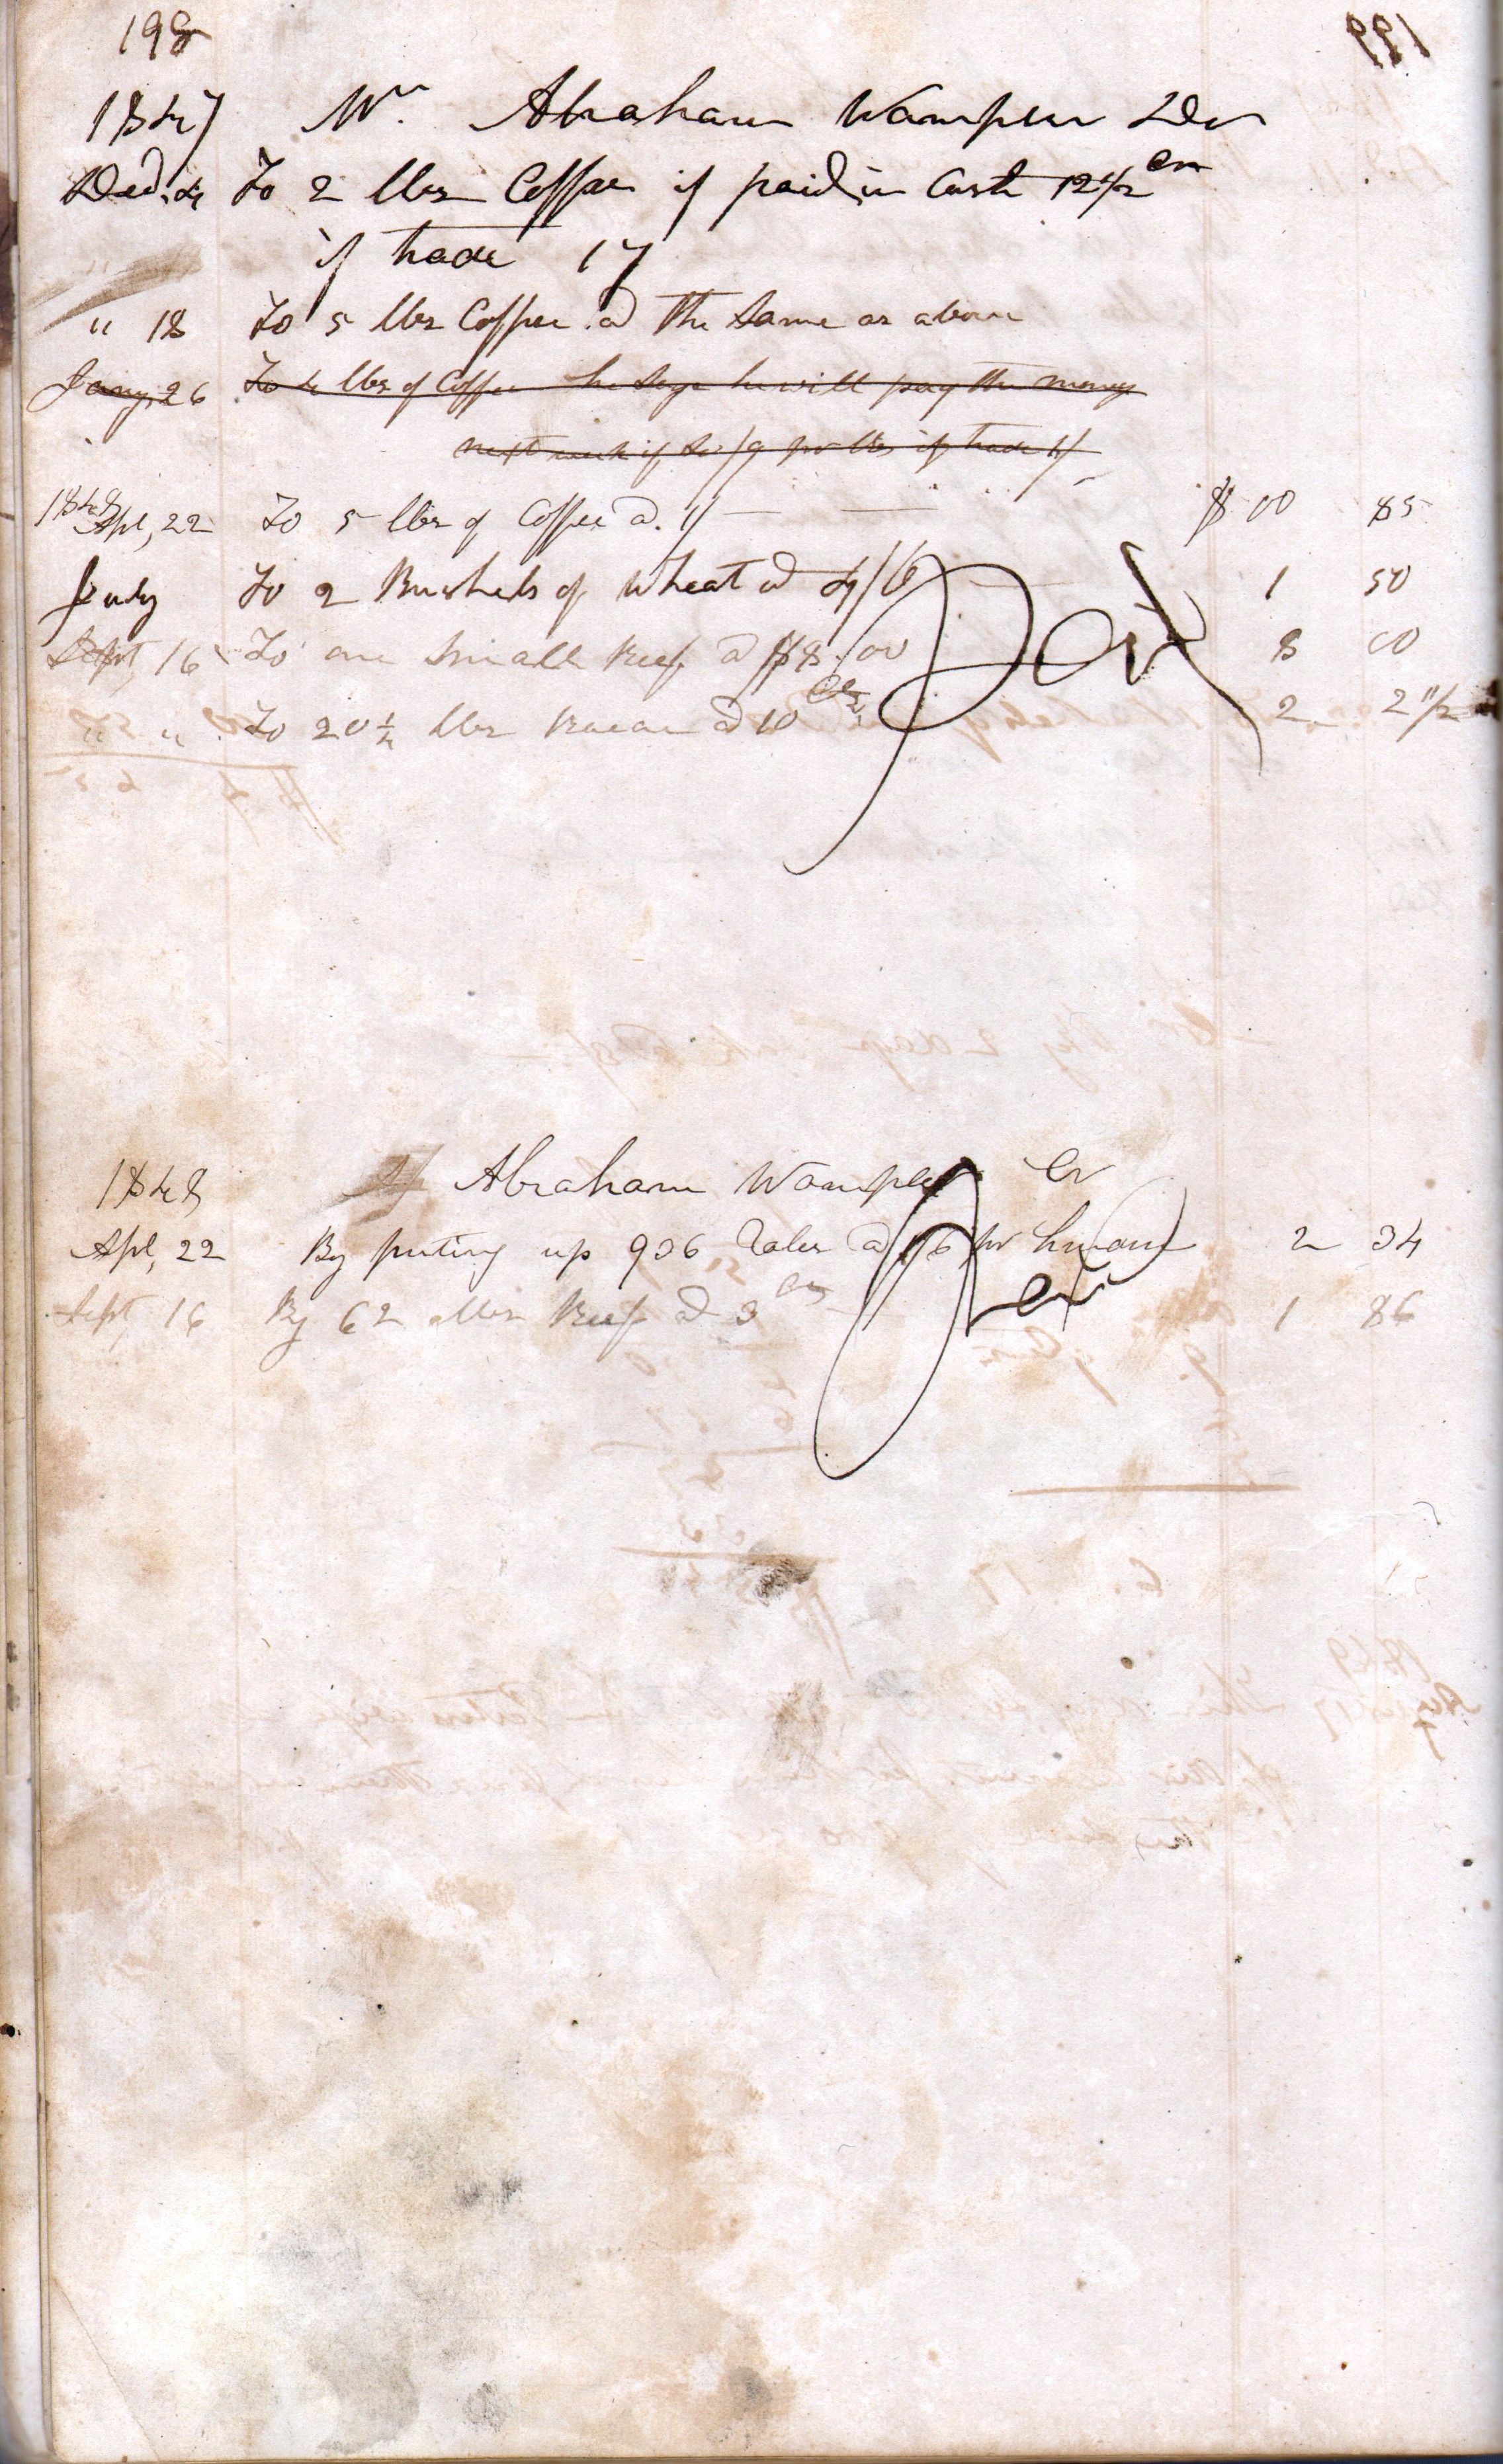 198
1847 Mr. Abraham Wampler Dr
Decb. 4 To 2 lbs Coffee if paid in Cash 12 1/2 cts
if trade 17
" 18 To 5 lbs Coffee @ the same as above
Jany 26 To 4 lbs of Coffee he says he will pay the money
next week if so /9 per lbs if trade 1/
1848
Apl, 22 To 5 lbs of Coffee @ 1/ $ 00 85
July To 2 Bushels of wheat @ 4/6 1 50
Sept, 16 To one small Beef @ $8.00 8 00
" " To 20 1/4 lbs Bacon @ 10 cts 2 2 1/2
1848 Abraham Wampler Cr
Apl, 22 By puting up 936 @ 1/6 pr 2 34
Sept, 16 By 62 lbs Beef @ 3 cts 1 86